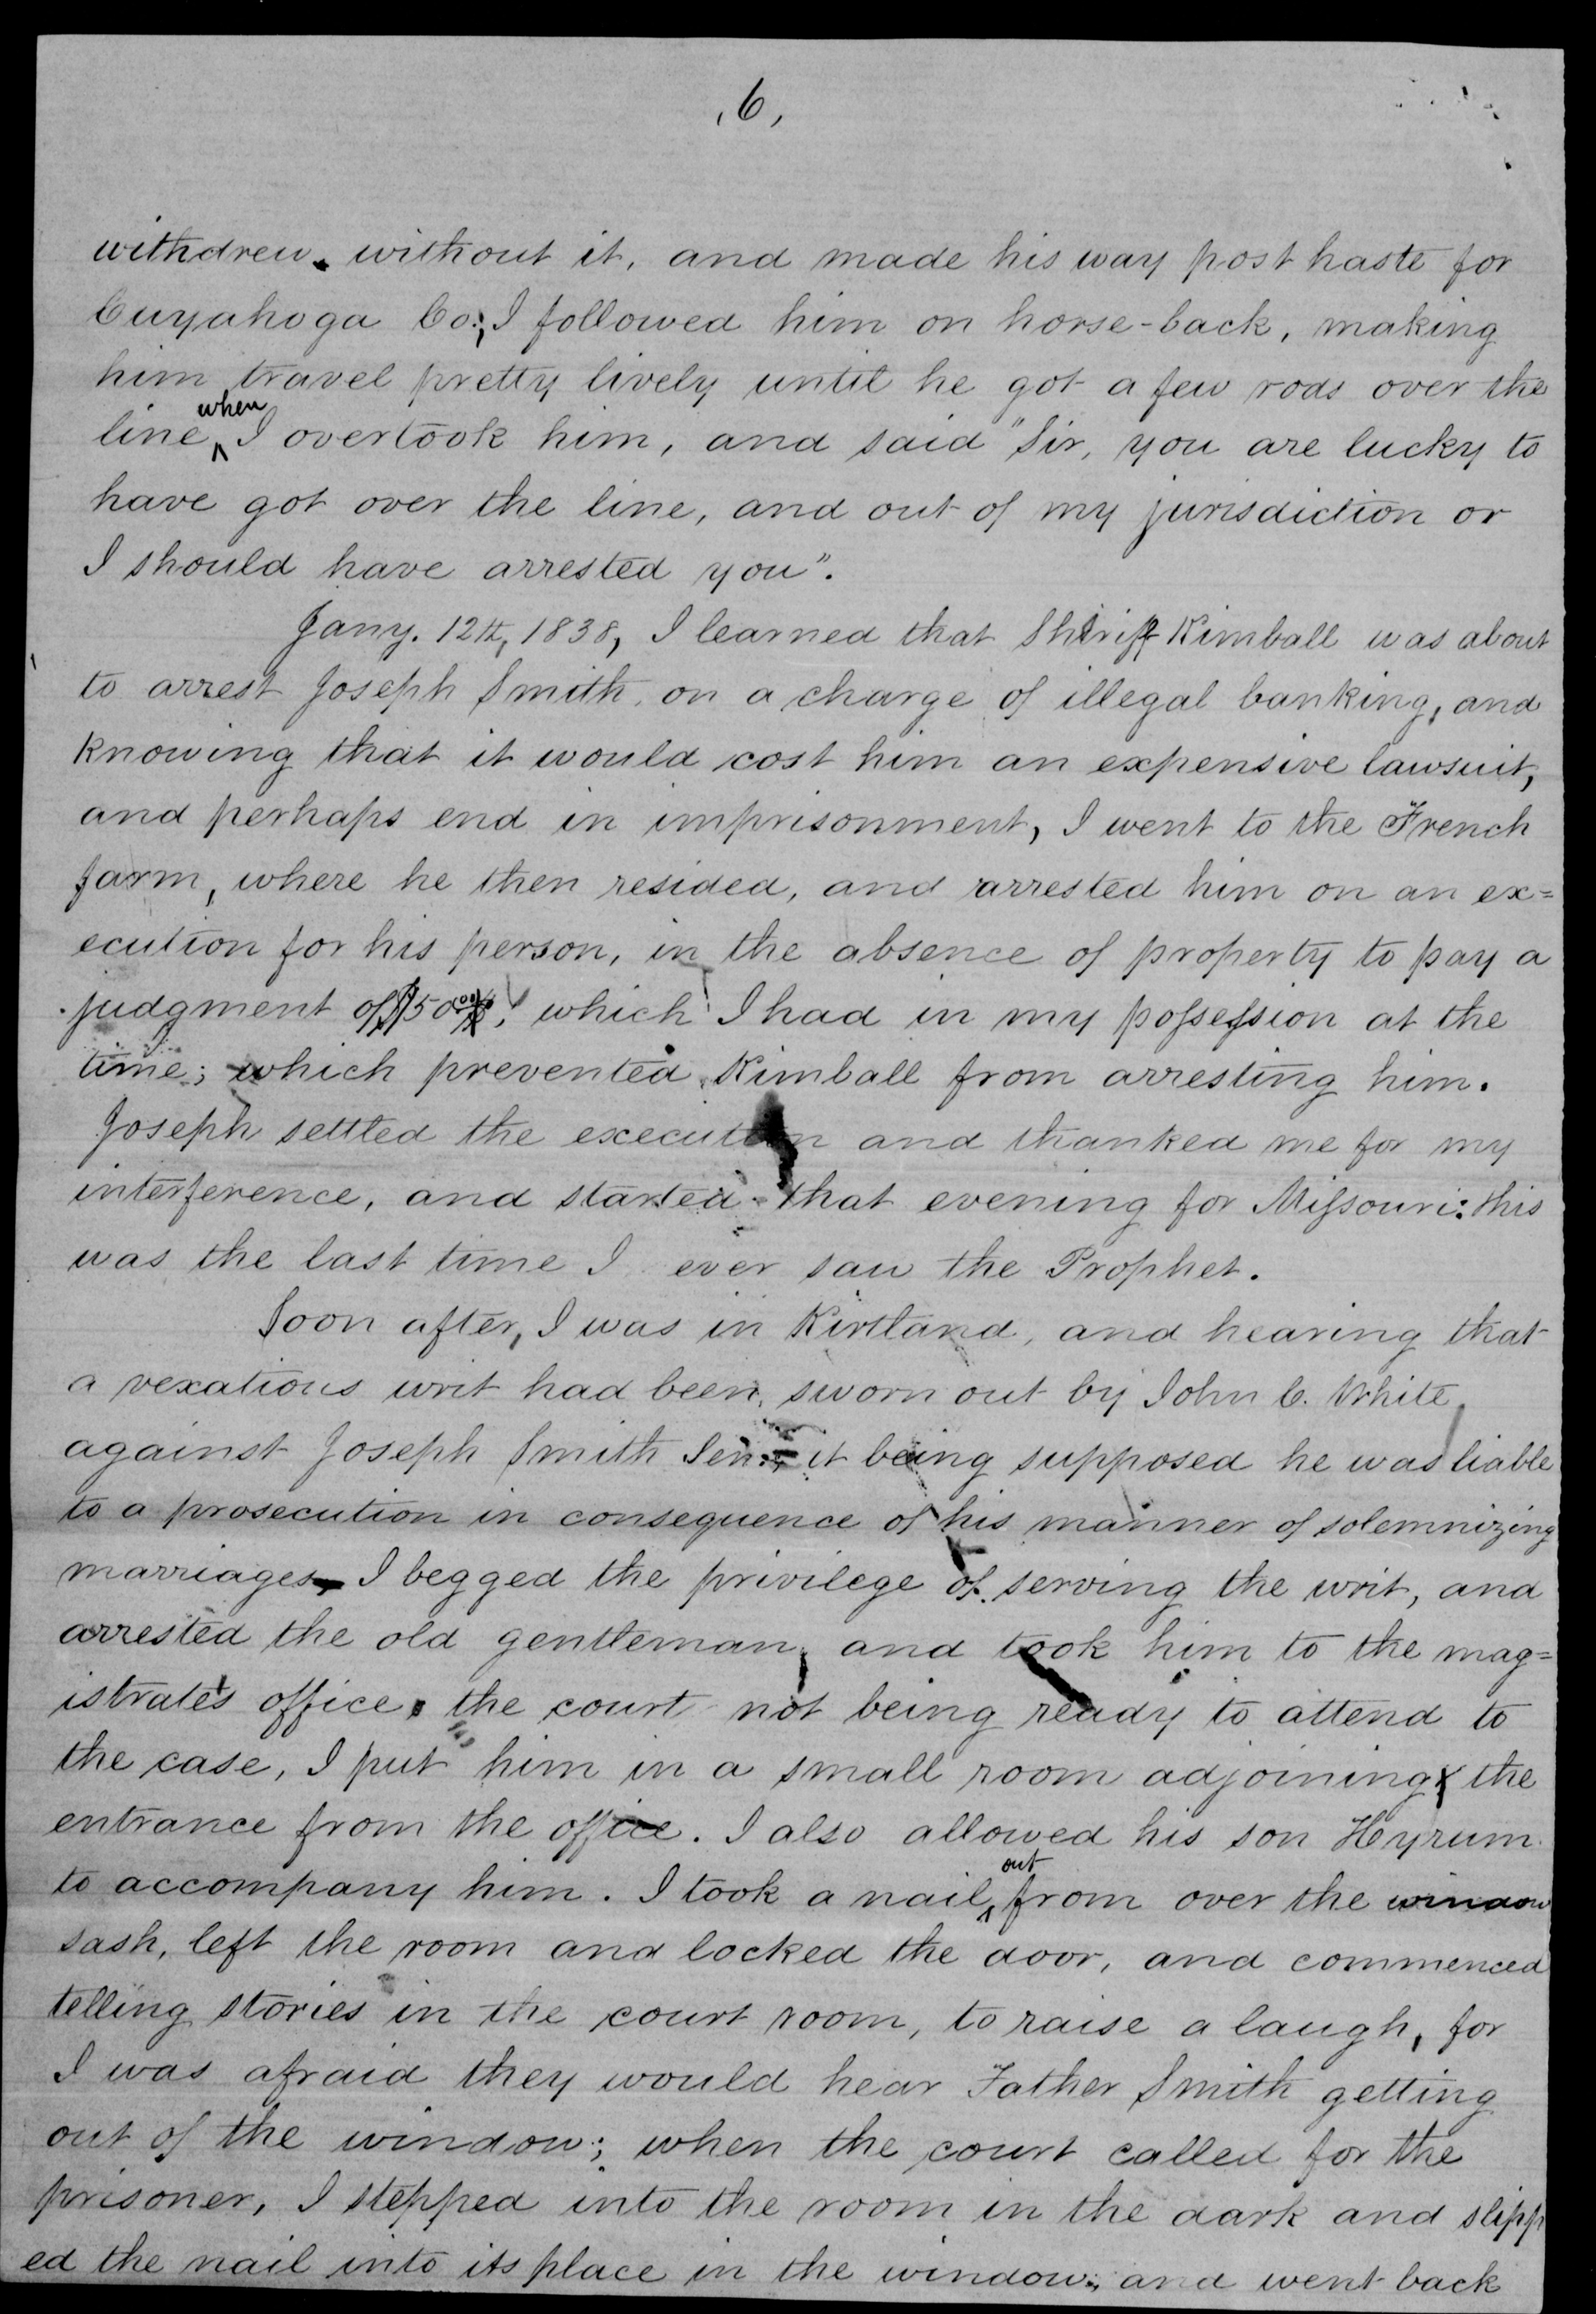 ,6,
withdrew. without it, and made his way post haste for
Cuyahoga Co.; I followed him on horse-back, making
him travel pretty lively until he got a few rods over the
line, when I overtook him, and said "Sir, you are lucky to
have got over the line, and out of my jurisdiction or
I should have arrested you".
Jany. 12th, 1838, I learned that Sheriff Kimball was about
to arrest Joseph Smith, on a charge of illegal banking, and
knowing that it would cost him an expensive lawsuit,
and perhaps end in imprisonment, I went to the French
farm, where he then resided, and arrested him on an ex=
ecution for his person, in the absence of property to pay a
judgment of $50.00, which I had in my possession at the
time; which prevented Kimball from arresting him.
Joseph settled the execution and thanked me for my
interference, and started that evening for Missouri: this
was the last time I ever saw the Prophet.
Soon after, I was in Kirtland, and hearing that
a vexatious writ had been, sworn out by John C. White,
against Joseph Smith Sen.; it being supposed he was liable
to a prosecution in consequence of his manner of solemnizing
marriages, I begged the privilege of serving the writ, and
arrested the old gentleman, and took him to the mag=
istrate's office, the court not being ready to attend to
the case, I put him in a small room adjoining the
entrance from the office. I also allowed his son Hyrum
to accompany him. I took a nail out from over the window
sash, left the room and locked the door, and commenced
telling stories in the court room, to raise a laugh, for
I was afraid they would hear Father Smith getting
out of the window; when the court called for the
prisoner, I stepped into the room in the dark and slipp
ed the nail into its place in the window; and went back